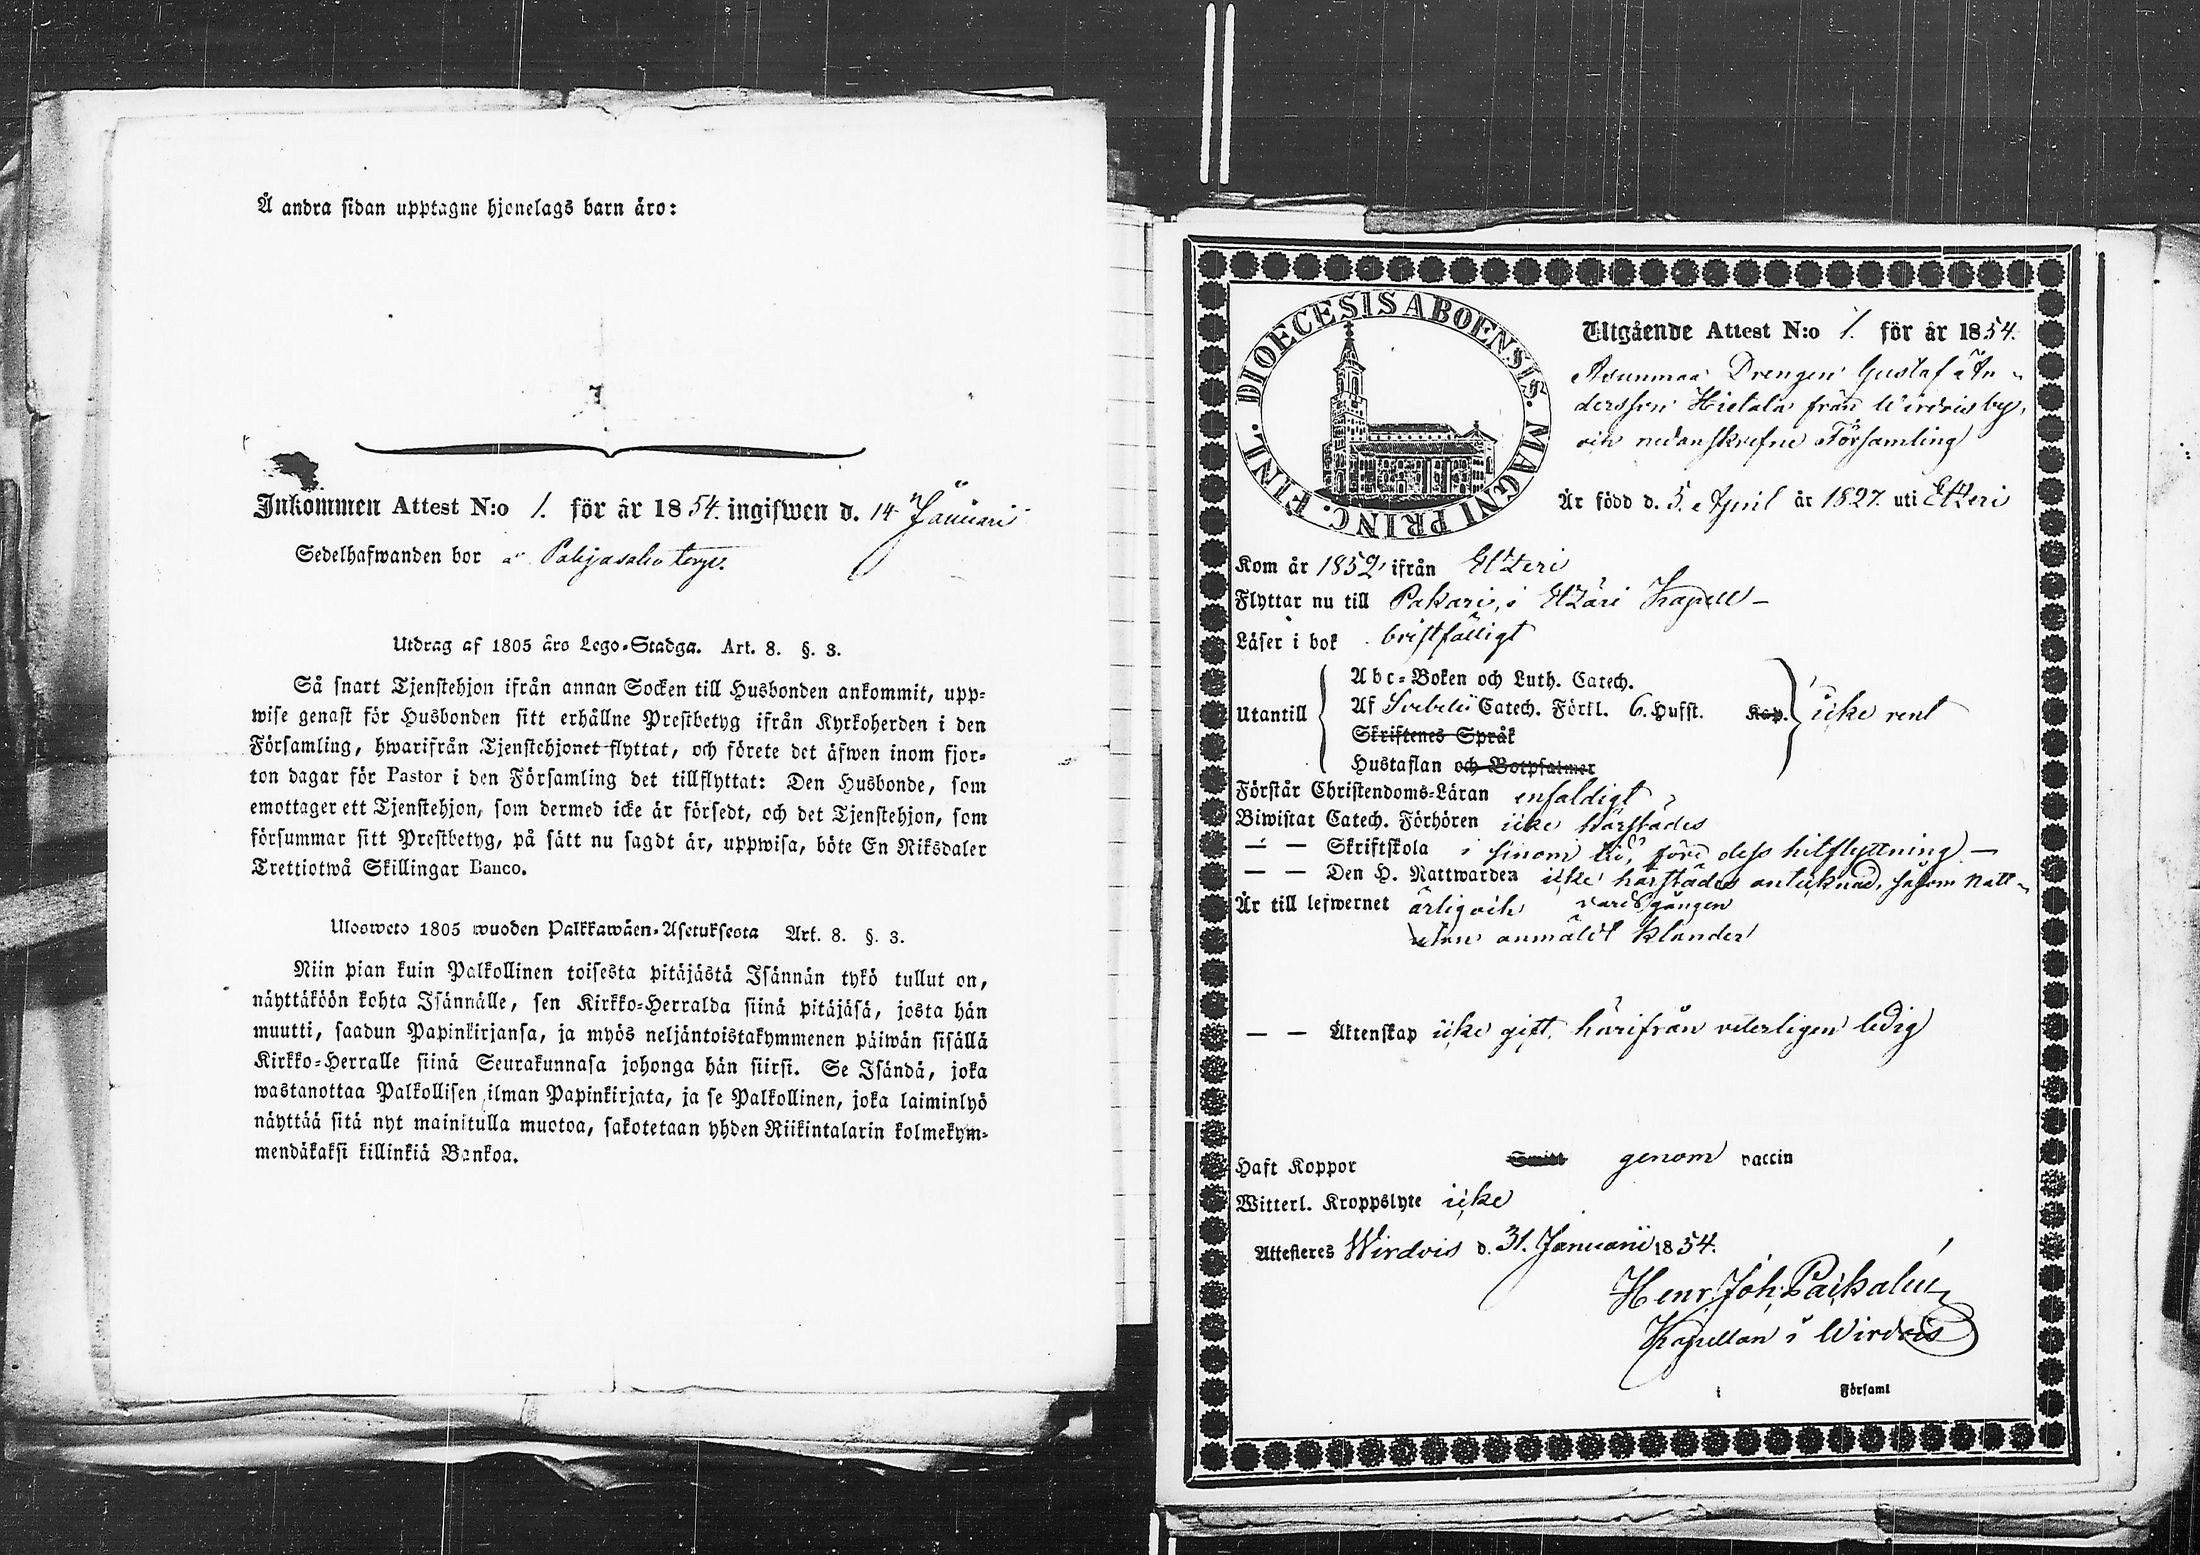 Å andra sidan upptagne hjonelags barn äro:
Inkommen Attest N:o 1. för år 1854. ingifwen d. 14 Januari
Sedelhafwanden bor å Pohjasalio torp.
Utdrag af 1805 års Lego-Stadga. Art. 8. §. 3.
Så snart Tjenstehjon ifrån annan Socken till Husbonden ankommit, upp-
wise genast för Husbonden sitt erhållne Prestbetyg ifrån Kyrkoherden i den
Församling, hwarifrån Tjenstehjonet flyttat, och förete det äfwen inom fjor-
ton dagar för Pastor i den Församling det tillflyttat: Den Husbonde, som
emottager ett Tjenstehjon, som dermed icke är försedt, och det Tjenstehjon, som
försummar sitt Prestbetyg, på sätt nu sagdt är, uppwisa, böte En Riksdaler
Trettiotwå Skillingar Banco.
Ulosweto 1805 wuoden Palkkawäen-Asetuksesta Art. 8. §. 3.
Niin pian kuin Palkollinen toisesta pitäjästä Isännän tykö tullut on,
näyttäköön kohta Isännälle, sen Kirkko-Herralda siinä pitäjäsä, josta hän
muutti, saadun Papinkirjansa, ja myös neljäntoistakymmenen päiwän sisällä
Kirkko-Herralle siinä Seurakunnasa johonga hän siirsi. Se Isändä, joka
wastanottaa Palkollisen ilman Papinkirjata, ja se Palkollinen, joka laiminlyö
näyttää sitä nyt mainitulla muotoa, sakotetaan yhden Riikintalarin kolmekym-
mendäkaksi killinkiä Bankoa.
DIOECESIS ABOENSIS. MAGNI PRINC. FINL.
Utgående Attest N:o 1. för år 1854.
Drengen Gustaf An-
dersson Hietala från Wirdois by,
och nedanskrefne Församling
Är född d. 5. April år 1827. uti Etzeri
Kom år 1852 ifrån Etzeri
Flyttar nu till Pakari, i Etzäri Kapell -
Läser i bok bristfälligt
Abc-Boken och Luth. Catech.
Utantill Af Svebelii Catech. Förkl. 6. Hufst. Kap. icke rent
Skriftenes Språk
Hustaflan och Botpsalmer
Förstår Christendoms-Läran enfaldigt
Biwistat Catech. Förhören icke härstädes
— — Skriftskola i sinom tid, före dess hitflyttning —
— — Den H. Nattwarden icke härstädes antecknad, såsom natt-
Är till lefwernet ärlig och vardsgången
utan anmäldt klander
— — Äktenskap icke gift, härifrån veterligen ledig
Haft Koppor Smitt genom vaccin
Witterl. Kroppslyte icke
Attesteres Wirdois d. 31. Januarii 1854.
Henr. Joh. Paikalén
Kapellan i Wirdois
i Församl